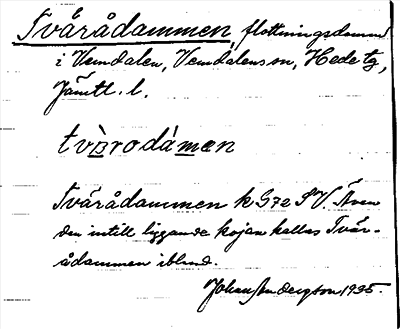 Tvärådammen, flottningsdamm
i Vemdalen, Vemdalens sn, Hede tg,
Jämtl. l.
tvärodámen
Tvärådammen k G72 SV. Även
den intill liggande kojan kallas Tvär-
ådammen ibland.
Johan Andersson 1935.